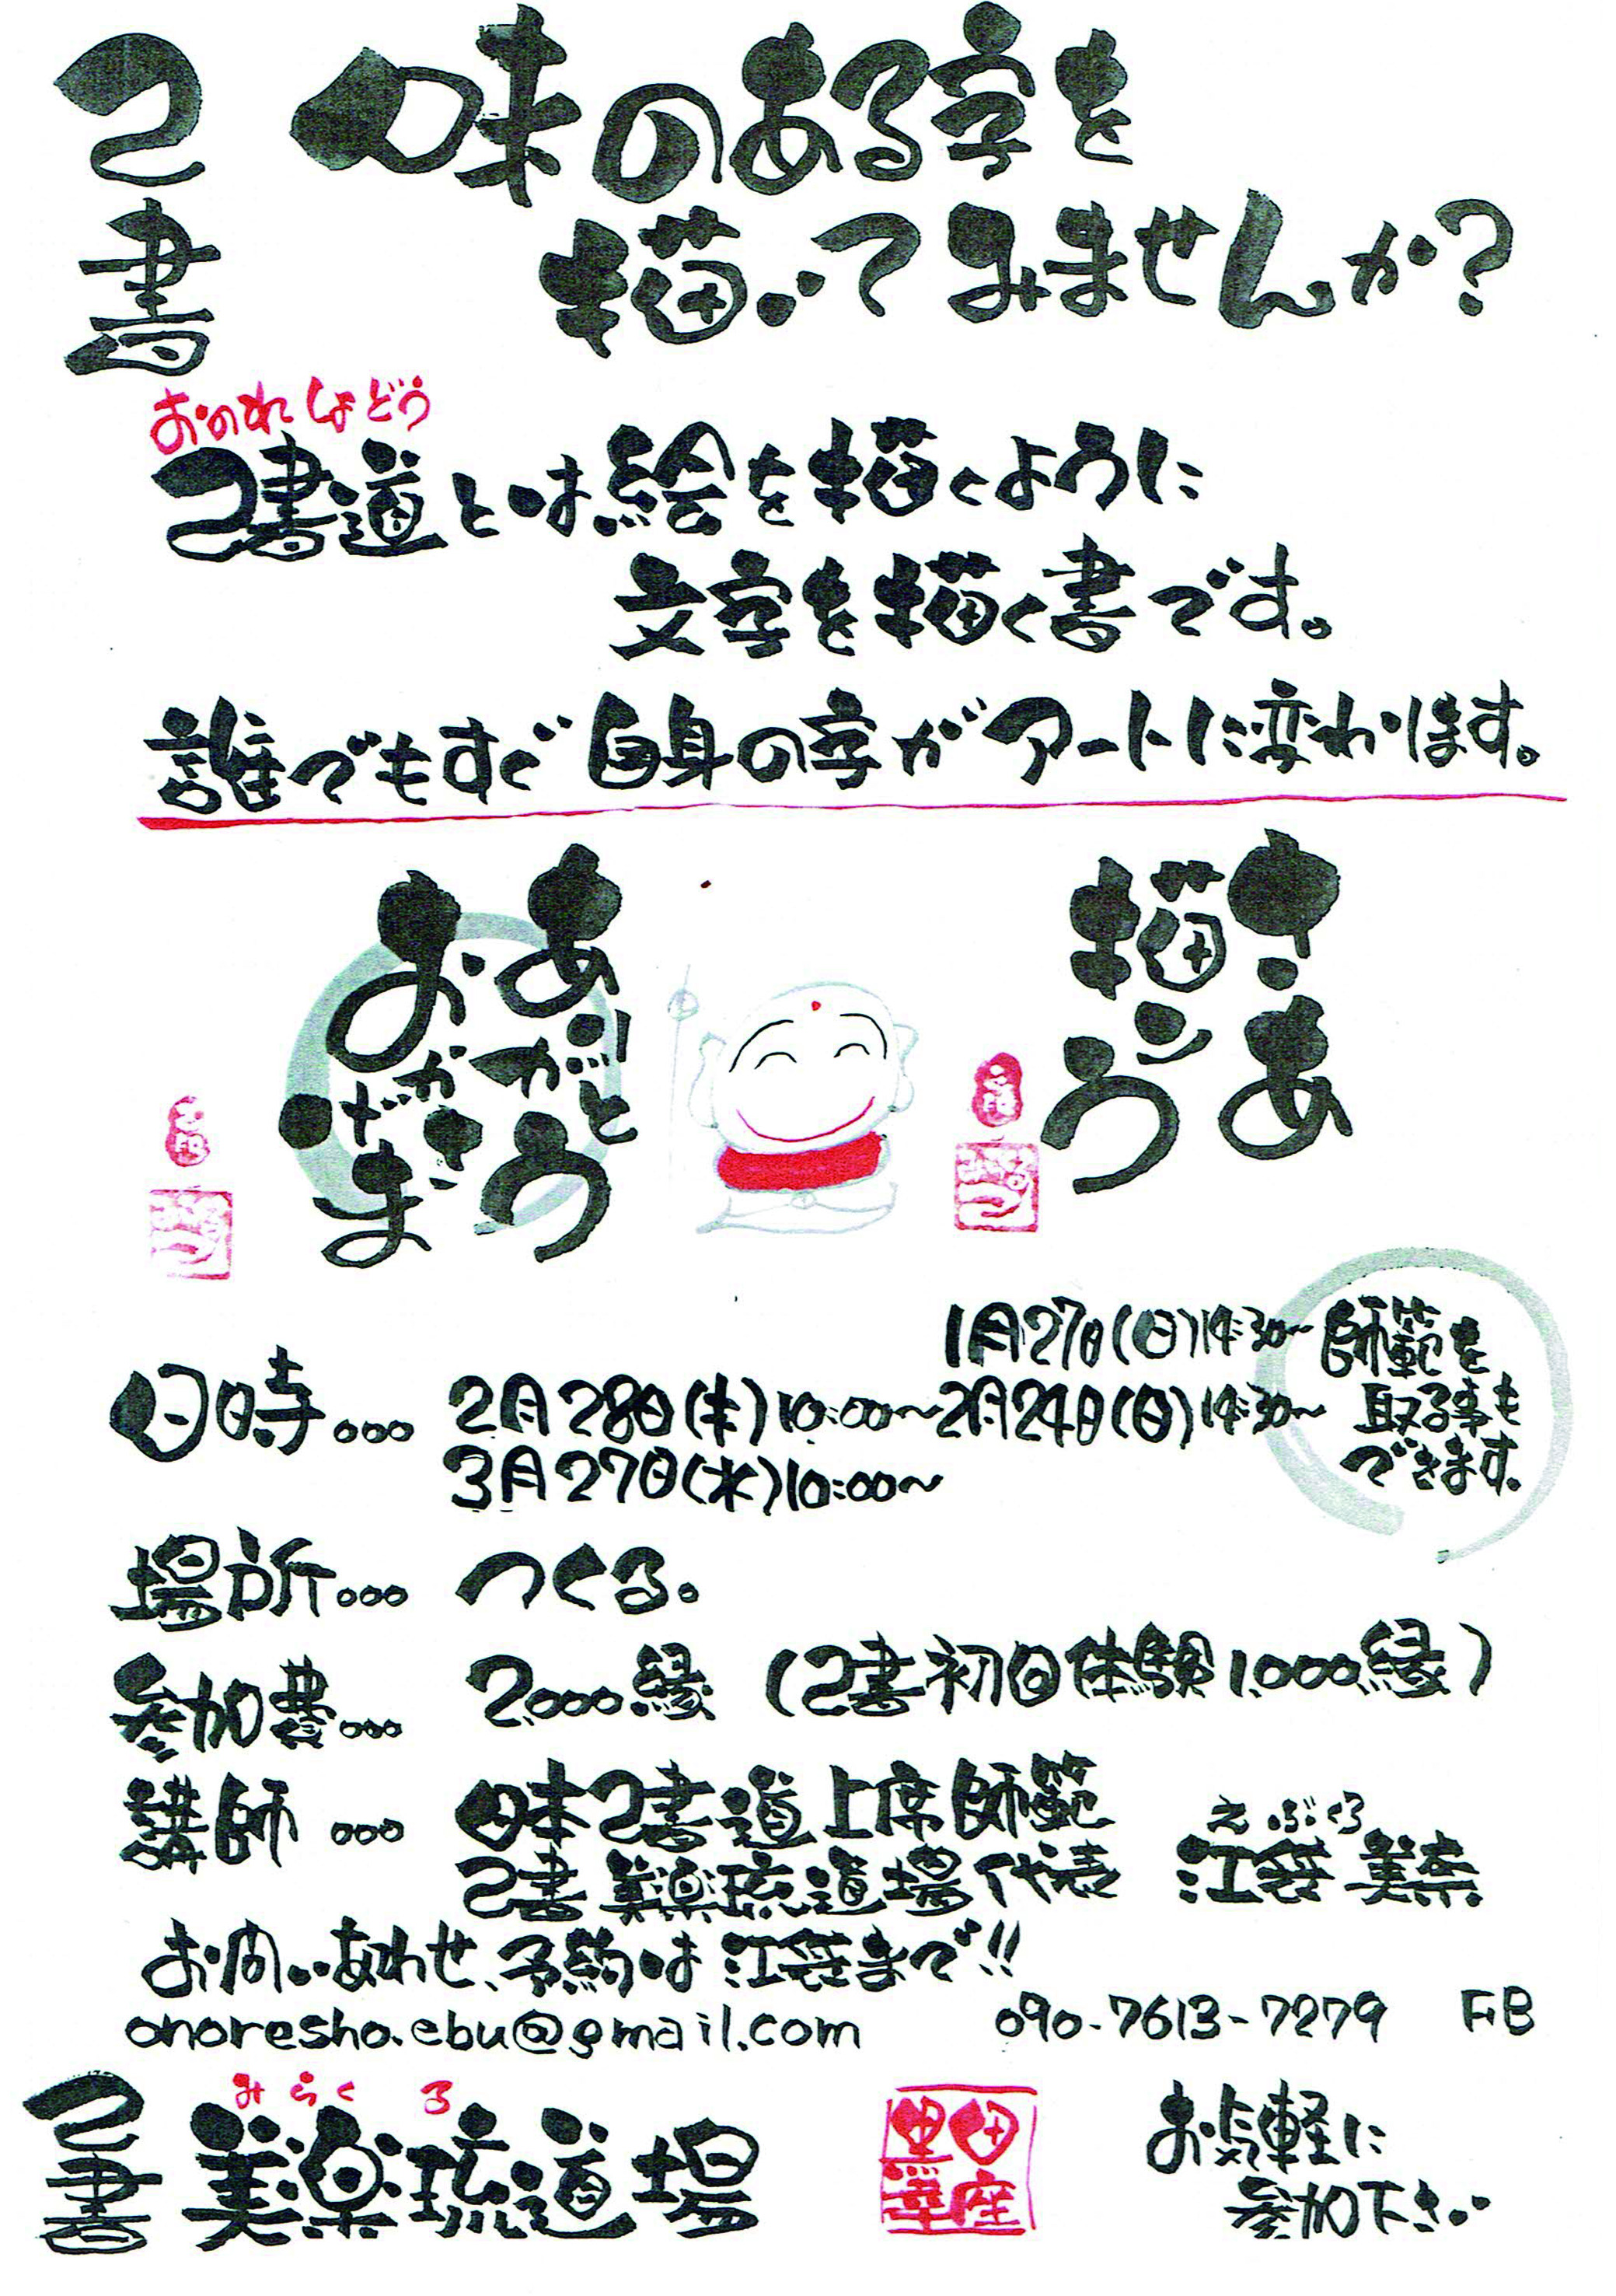 己書
味のある字を
描いてみませんか?
おのれしょどう
己書道とは絵を描くように
文字を描く書です。
誰でもすぐ自身の字がアートに変わります。
ありがとう
おかげさま
さあ
描こう
1月27日(日)14:30~
日時... 2月28日(木)10:00~2月24日(日)14:30~
3月27日(水)10:00~
師範を
取る事も
できます。
場所... つくる。
参加費... 2,000縁 (己書初回体験1,000縁)
講師... 日本己書道上席師範
えぶくろ
己書美楽琉道場代表 江袋美奈
お問いあわせ、予約は江袋まで!!
onoresho.ebu@gmail.com 090-7613-7279 FB
みらくる
己書 美楽琉道場
お気軽に
参加下さい